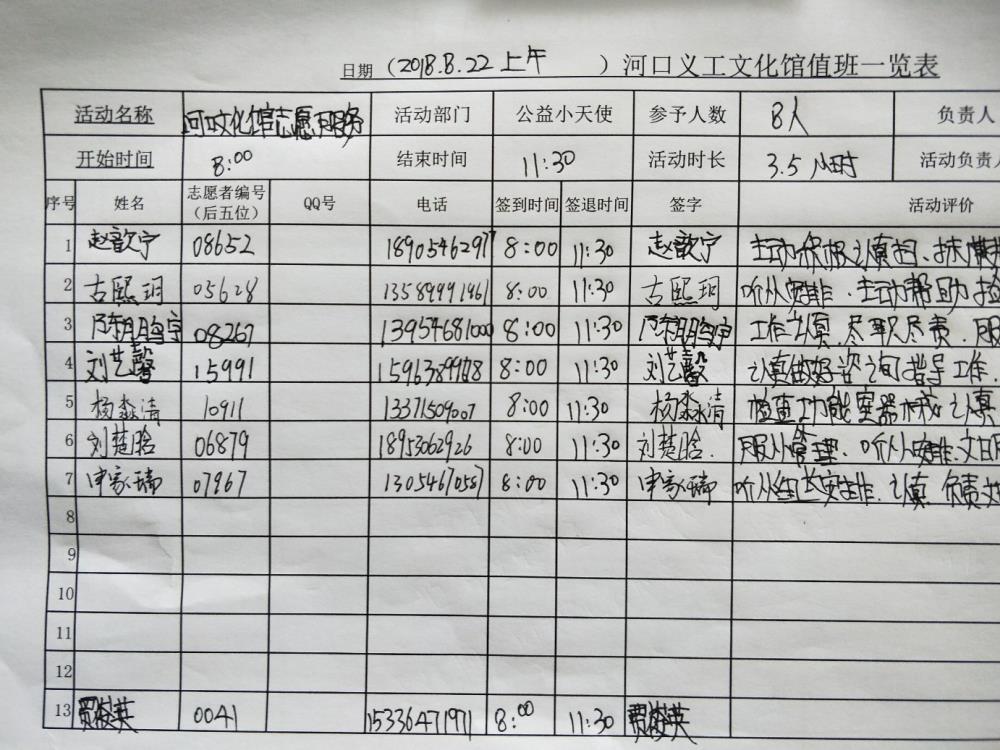 日期（2018.8.22 上午 ）河口义工文化馆值班一览表
活动名称 河口文化馆志愿服务 活动部门 公益小天使 参予人数 8人 负责人
开始时间 8:00 结束时间 11:30 活动时长 3.5 小时 活动负责人
序号 姓名 志愿者编号（后五位） QQ号 电话 签到时间 签退时间 签字 活动评价
1 赵歆宁 08652 1890546297 8:00 11:30 赵歆宁 主动积极认真
2 古熙珂 05628 13589991961 8:00 11:30 古熙珂 听从安排、主动帮助
3 08267 13954681000 8:00 11:30 工作认真、尽职尽责、服
4 刘艺馨 15991 8:00 11:30 刘艺馨 认真做好咨询指导工作、
5 杨淼清 10911 13371509007 8:00 11:30 杨淼清 检查功能室器械认真
6 刘楚晗 06879 18953062926 8:00 11:30 刘楚晗. 服从管理、听从安排
7 申家瑞 07967 13054670587 8:00 11:30 申家瑞 听从组长安排、认真、负责
8
9
10
11
12
13 0041 15336471971 8:00 11:30